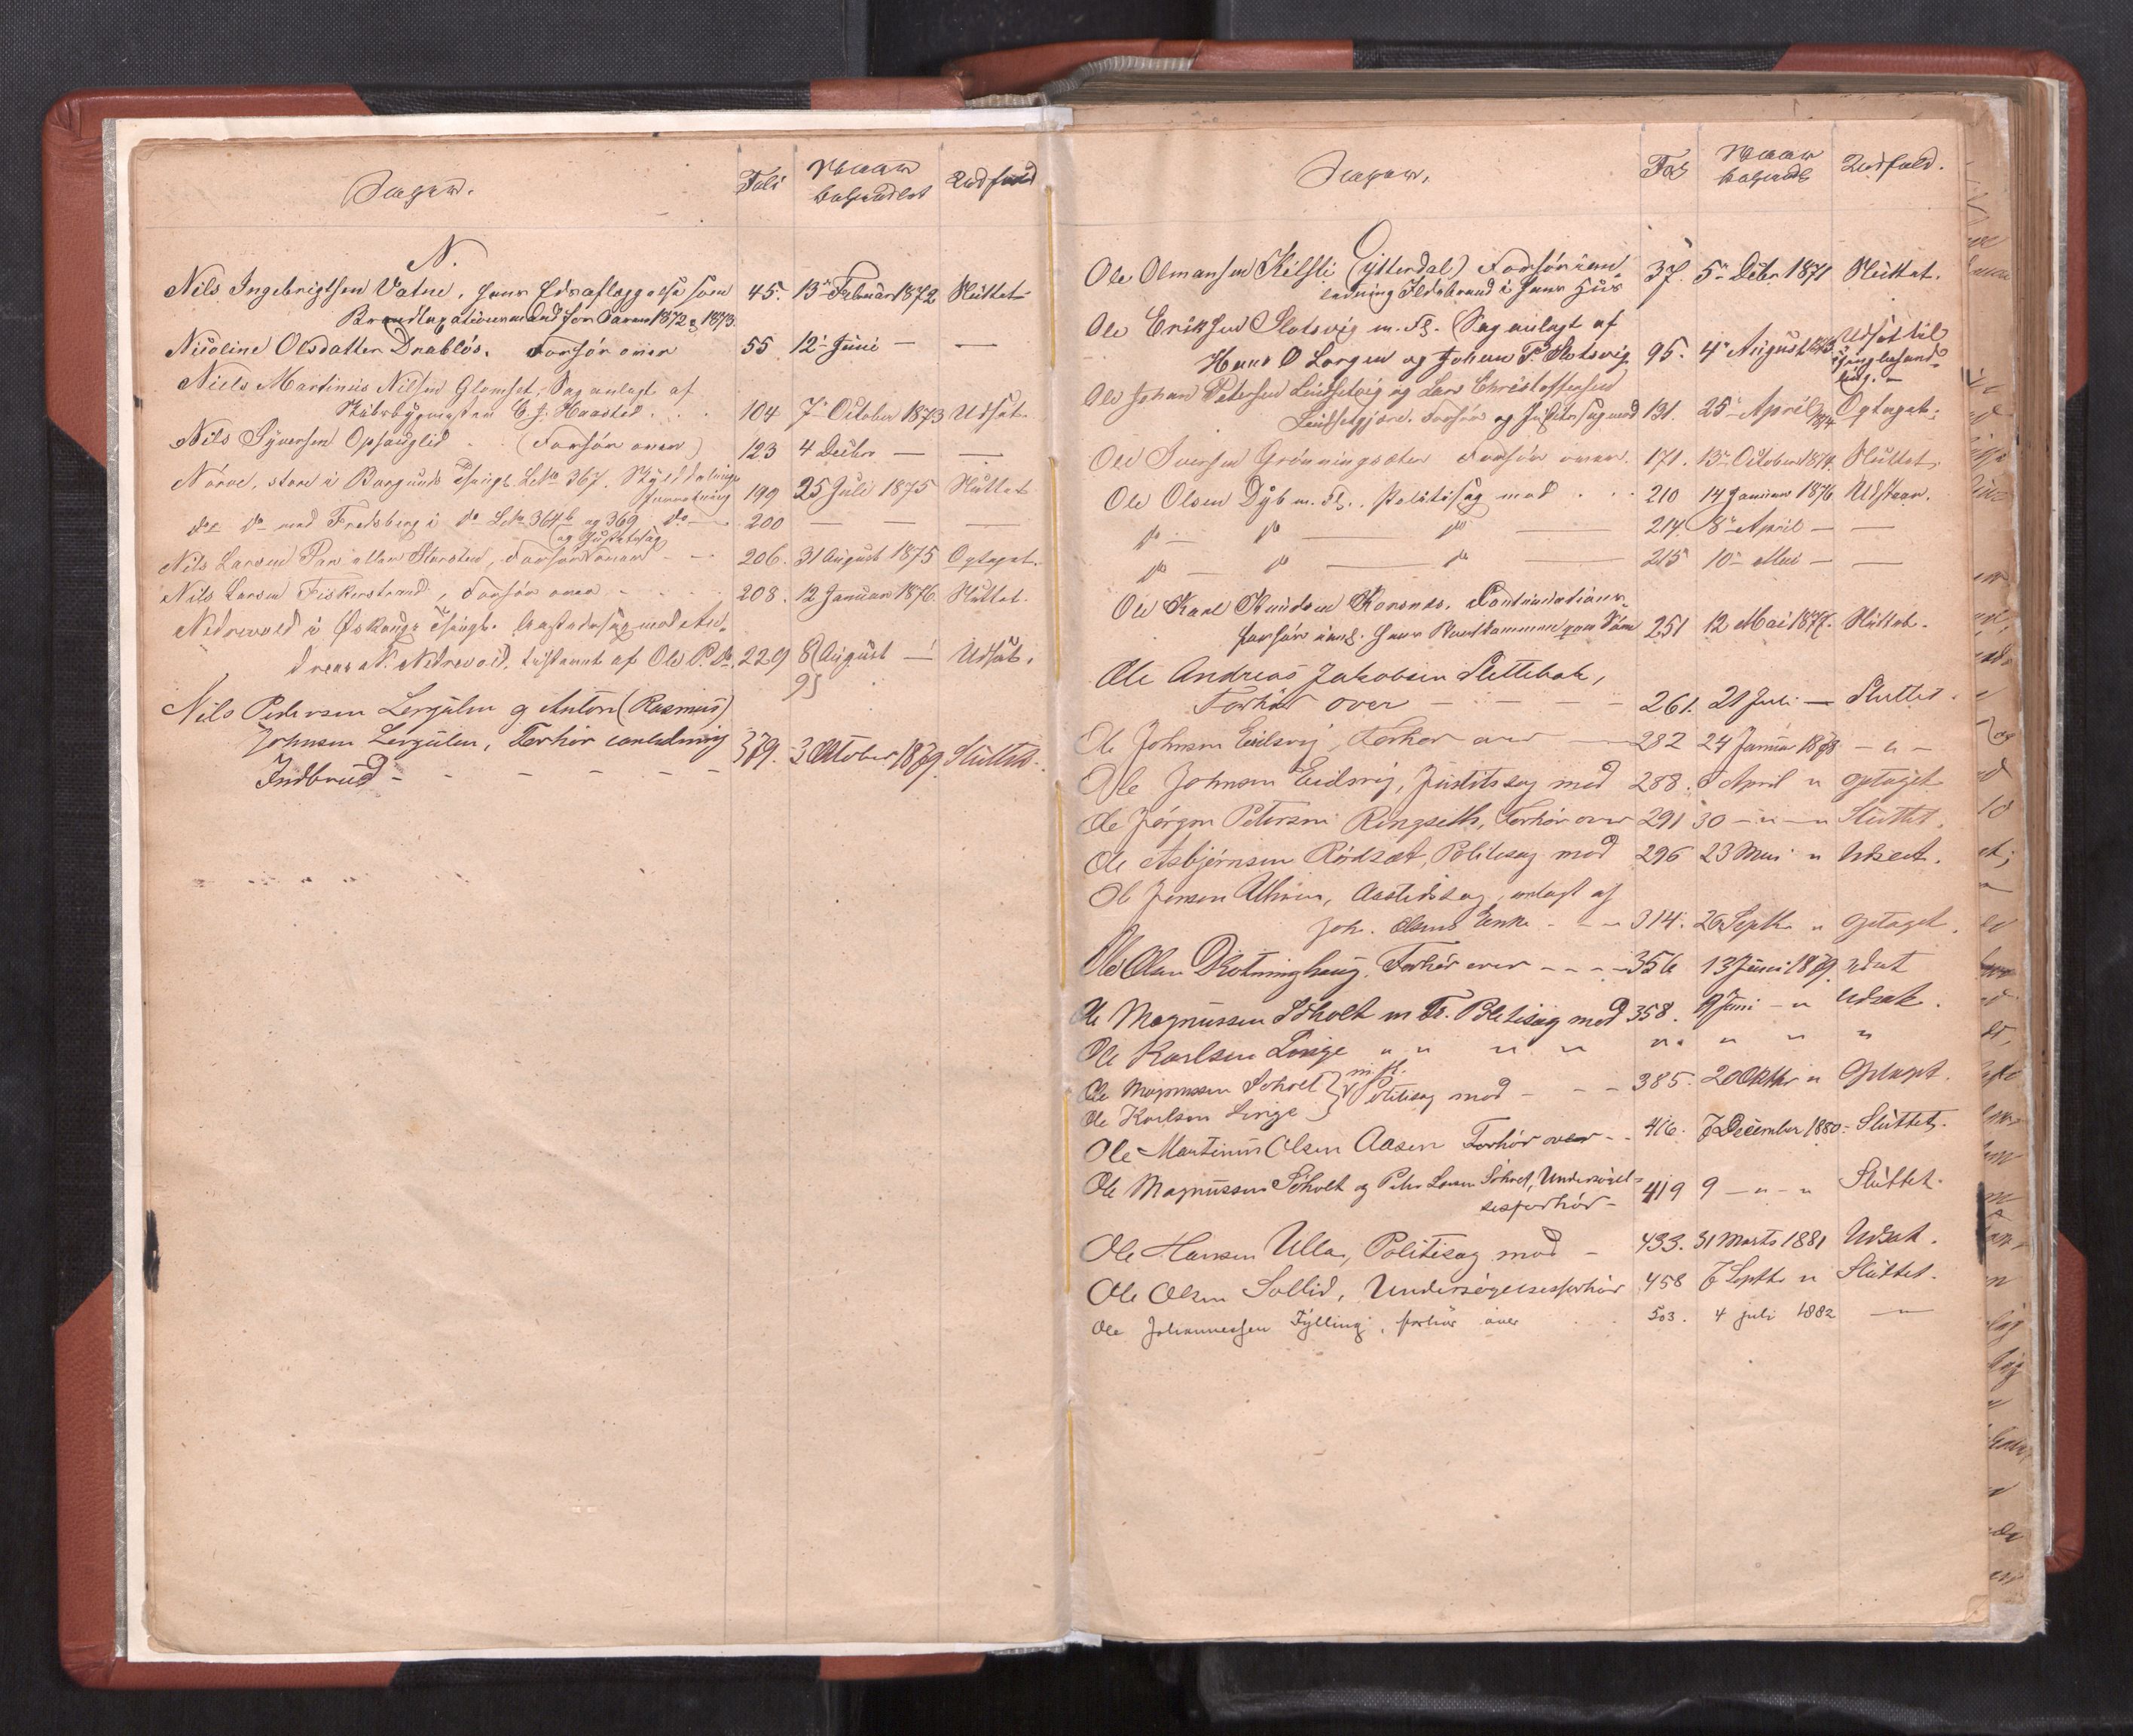 Sagen.
Folio
Naar behandlet
Udfald
N.
Nils Ingebrigtsen Vatne, hans Edsaflæggelse som 45. 13de Februar 1872 Sluttet
Brandtaxationsmand for Aarene 1872 & 1873.
Nicoline Olsdatter Drabløs. Forhør over 55 12te Juni — —
Niels Martinus Nilsen Glomset, Sag anlagt af
Skibsbygmester E. J. Haasted . . . 104 7de October 1873 Udsat
Nils Syversen Opsanglid (Forhør over) 123 4 Decbr — —
Nørve, store i Borgunds Thingl. L.No 367, Skylddelings
forretning 199 25 Juli 1875 Sluttet
do do med Fredsberg i do L.No 364b og 369 do 200 — — —
og Justitssag
Nils Larsen eller Storsten, Forhør over 206. 31 August 1875 Optaget.
Nils Larsen Fiskerstrand, Forhør over 208. 12 Januar 1876. Sluttet.
Nedrevold i Ørskougs Thingl. Aastedssag mod An-
dreas N. Nedrevold, indstevnt af Ole P. do. 229 8/9 August — Udsat.
Nils Pedersen Lergulen og Anton (Rasmus)
Johnsen Lergulen, Forhør anledning 379. 3 Oktober 1879. Sluttet.
Indbrud - - - - - -
Sagen.
Fol
Naar behandl
Udfald.
O
Ole Olmansen Kilsti (Ytterdal) Forhør i an-
ledning Ildebrand i hans Hus 37. 5te Decbr 1871 Sluttet.
Ole Eriksen Slotsvig m. Fl. (Sag anlagt af
Hans O Langen og Johan P. Slotsvig 95. 4de August 1873 Udsat til
Thingbehand-
ling. —
Ole Johan Petersen Lindsetvig og Lars Christoffersen
Lindsetgjære. Forhør og Justitssag mod 131. 25de April 1874 Optaget.
Ole Iversen Grønningsæter Forhør over. 171. 13de October 1874. Sluttet.
Ole Olsen Dyb m. Fl., Politisag mod . . . 210 14 Januar 1876 Udsat.
do — do — do — 214. 8de April — —
do — do — do — 215 10de Mai — —
Ole Karl Knudsen Korsnes. Continuations-
forhør 251 12 Mai 1877. Sluttet.
Ole Andreas Jakobsen Slettebak,
Forhør over — — — — 261. 21 Juli — Sluttet.
Ole Johnsen Eidsvig, Forhør over — 282 24 Januar 1878 — " —
Ole Johnsen Eidsvig, Justitssag mod 288. 5 April " Optaget
Ole Jørgen Petersen Ringseth, Forhør over 291 30 — " — " Sluttet.
Ole Asbjørnsen Rødsæt, Politisag mod 296 23 Mai " Udsat.
Ole Jensen Uhren, Aastedssag, anlagt af
Joh. Olsens Enke - - - 314. 26 Septbr " Optaget.
Ole Olsen Drotninghaug. Forhør over - - - - 356 13 Juni 1879. Udsat
Ole Magnussen Søholt m Fl. Politisag mod 358. 19 Juni - " Udsat.
Ole Karlsen Linge " " " " " " " "
m. fl.
Ole Magnussen Søholt } Politisag mod - - - 385. 20 Oktbr " Optaget.
Ole Karlsen Linge }
Ole Martinus Olsen Aasen Forhør over - - 416. 7 December 1880. Sluttet.
Ole Magnussen Søholt og Peter Larsen Søholt, Undersøgel-
sesforhør - 419 9 — " - " Sluttet.
Ole Hansen Ulla, Politisag mod - 433. 31 Marts 1881 Udsat.
Ole Olsen Sollid, Undersøgelsesforhør 458 6 Septbr " Sluttet.
Ole Johannessen Fylling, forhør over . . 503. 4 juli 1882 — " —